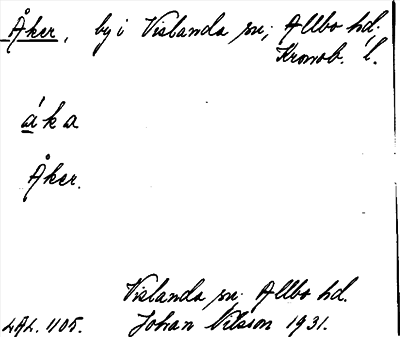 Åker, by i Vislanda sn, Allbo hd.
Kronob. l.
áka
Åker.
Vislanda sn. Allbo hd.
LAL. 1105. Johan Nilsson 1931.